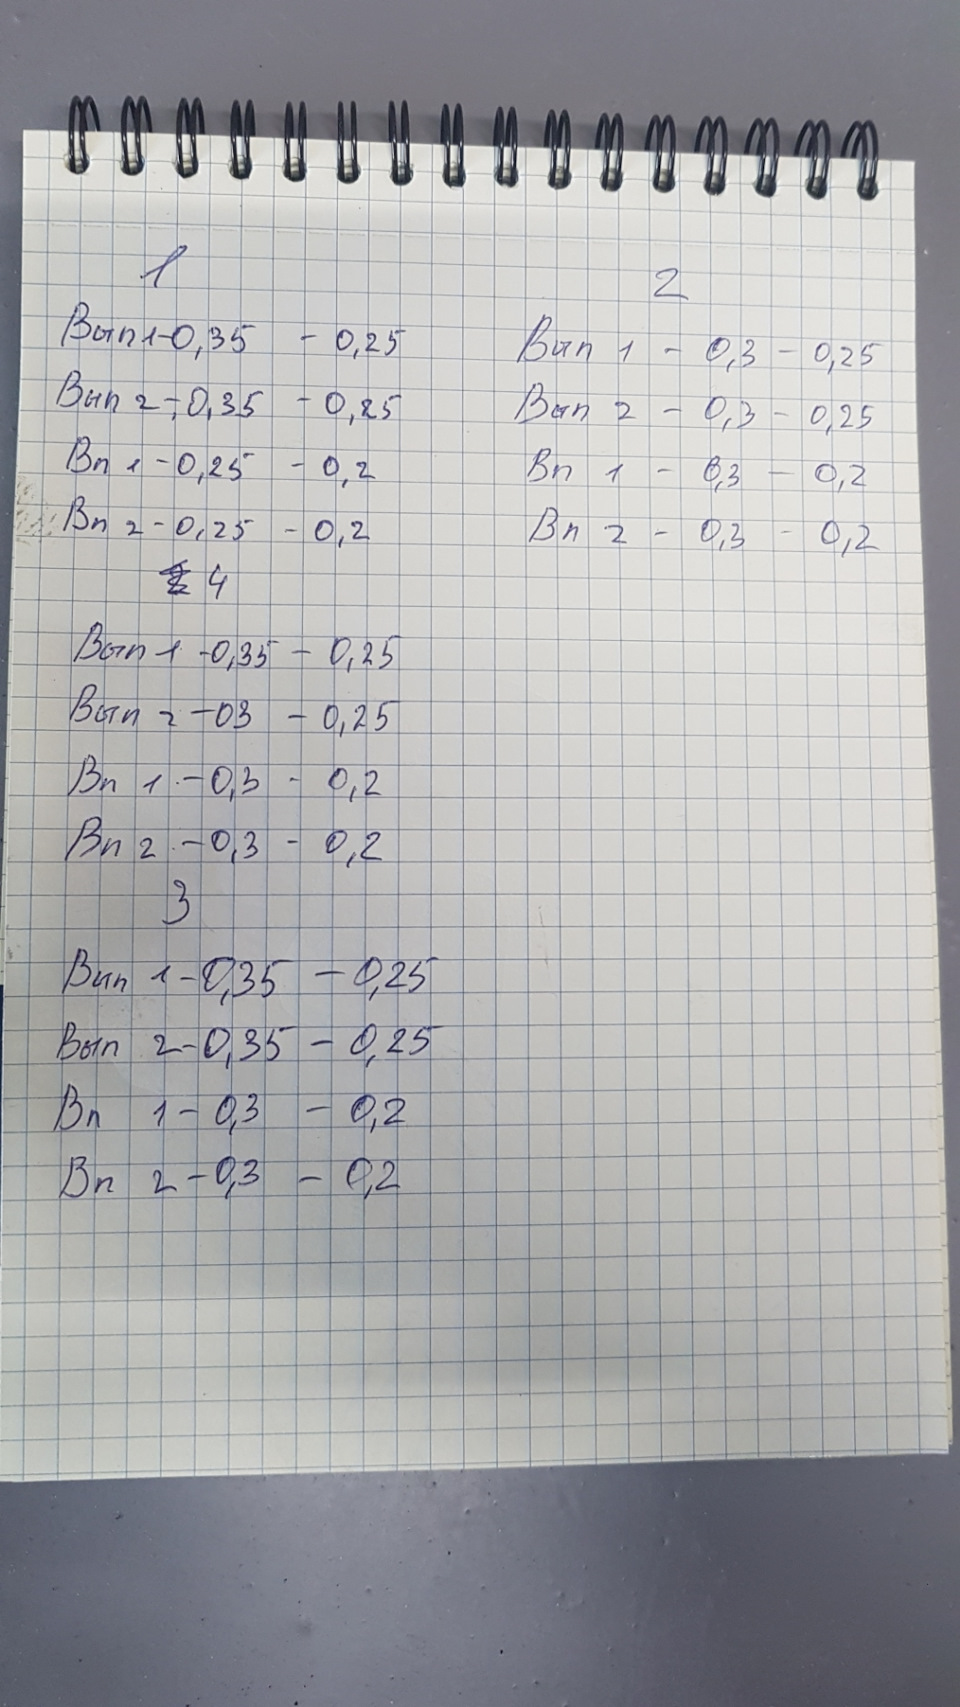 1
Вып 1-0,35 - 0,25
Вып 2-0,35 - 0,25
Вп 1-0,25 - 0,2
Вп 2-0,25 - 0,2
2
Вып 1 - 0,3 - 0,25
Вып 2 - 0,3 - 0,25
Вп 1 - 0,3 - 0,2
Вп 2 - 0,3 - 0,2
4
Вып 1 -0,35 - 0,25
Вып 2 -03 - 0,25
Вп 1 -0,3 - 0,2
Вп 2 -0,3 - 0,2
3
Вып 1-0,35 - 0,25
Вып 2-0,35 - 0,25
Вп 1-0,3 - 0,2
Вп 2-0,3 - 0,2